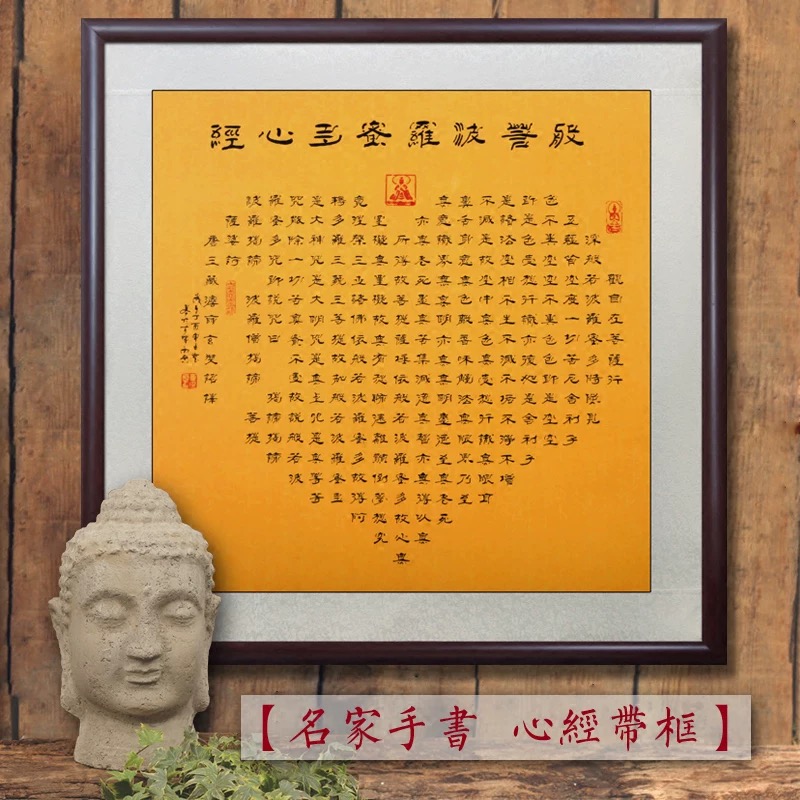 般若波羅蜜多心經
觀自在菩薩行
深般若波羅蜜多時照見
五蘊皆空度一切苦厄舍利子
色不異空空不異色色即是空空
即是色受想行識亦復如是舍利子
是諸法空相不生不滅不垢不淨不增
不減是故空中無色無受想行識無眼耳
鼻舌身意無色聲香味觸法無眼界乃至
無意識界無無明亦無無明盡乃至無老死
亦無老死盡無苦集滅道無智亦無得以無
所得故菩提薩埵依般若波羅蜜多故心無
罣礙無罣礙故無有恐怖遠離顛倒夢想究
竟涅槃三世諸佛依般若波羅蜜多故得阿
耨多羅三藐三菩提故知般若波羅蜜多
是大神咒是大明咒是無上咒是無等等
咒能除一切苦真實不虛故說般若波
羅蜜多咒即說咒曰 揭諦揭諦
波羅揭諦 波羅僧揭諦 菩提
薩婆訶
唐三藏法師玄奘譯
【名家手書 心經帶框】